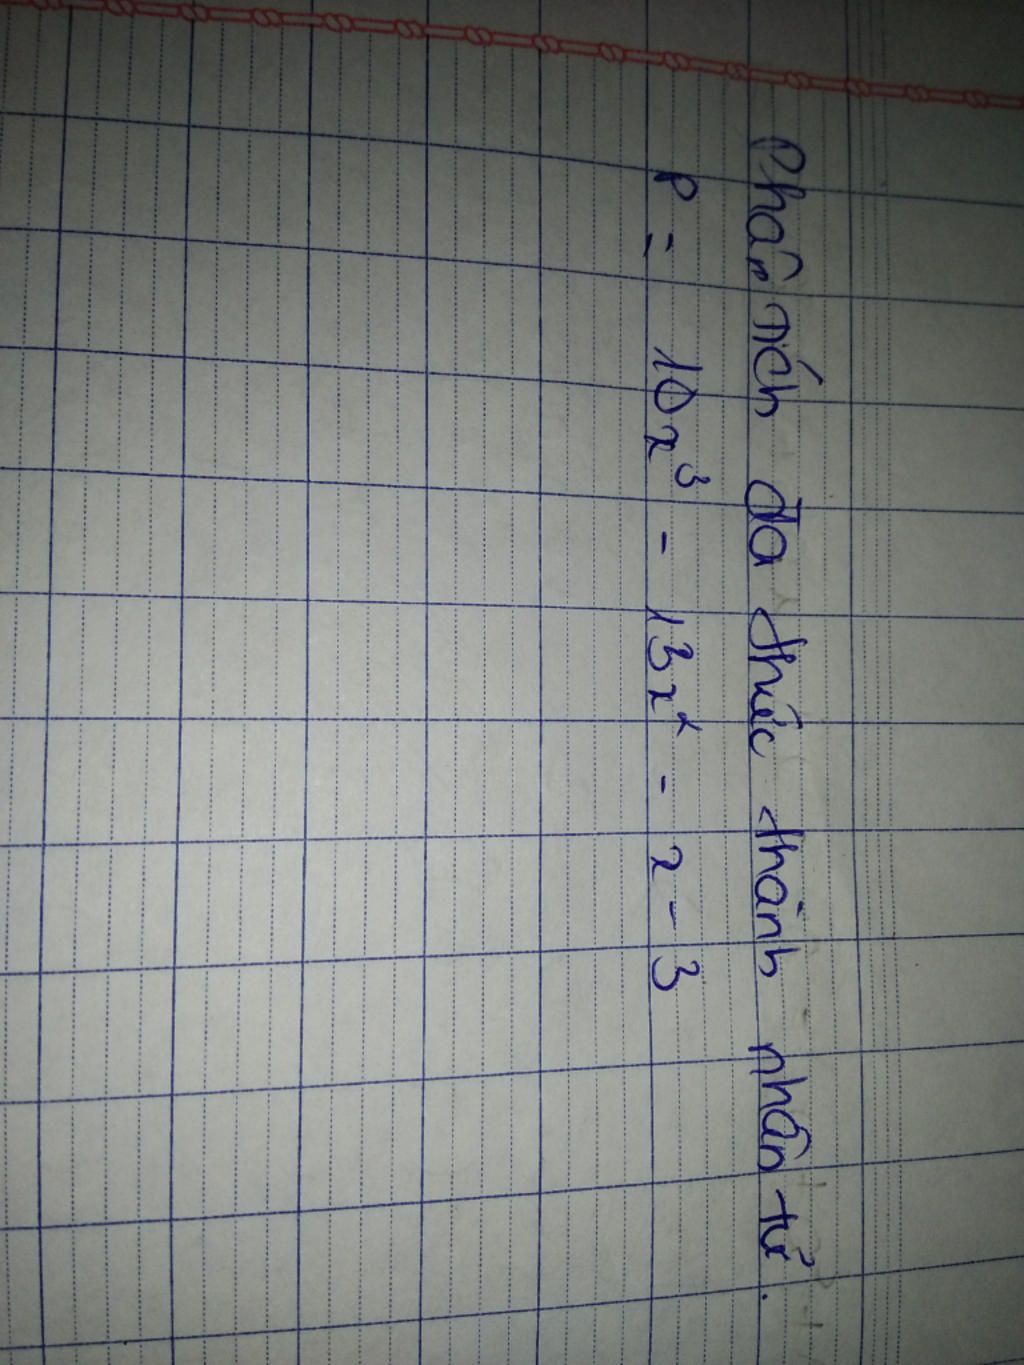 Phân tích đa thức thành nhân tử.
P = 10x³ - 13x² - x - 3